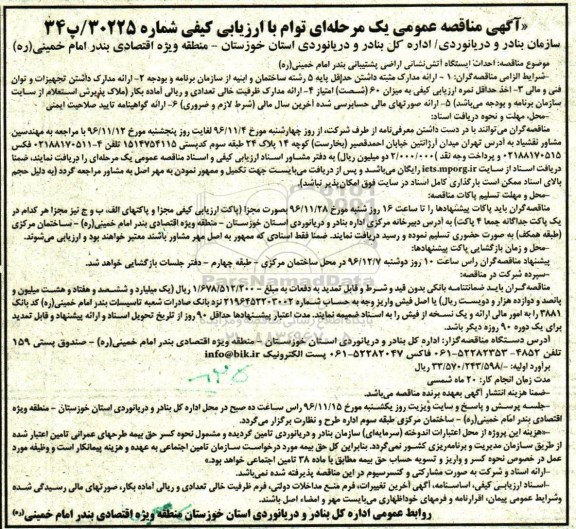 «آگهی مناقصه عمومی یک مرحله‌ای توام با ارزیابی کیفی شماره ۳۰۲۲۵/پ۳۴
سازمان بنادر و دریانوردی/ اداره کل بنادر و دریانوردی استان خوزستان – منطقه ویژه اقتصادی بندر امام خمینی(ره)
موضوع مناقصه: احداث ایستگاه آتش‌نشانی اراضی پشتیبانی بندر امام خمینی(ره)
–شرایط الزامی مناقصه‌گران: ۱- ارائه مدارک مثبته داشتن حداقل پایه ۵ رشته ساختمان و ابنیه از سازمان برنامه و بودجه ۲- ارائه مدارک داشتن تجهیزات و توان
فنی و مالی ۳- اخذ حداقل نمره ارزیابی کیفی به میزان ۶۰ (شصت) امتیاز ۴- ارائه مدارک ظرفیت خالی تعدادی و ریالی آماده بکار (ملاک پذیرش استعلام از سایت
سازمان برنامه و بودجه می‌باشد) ۵- ارائه صورتهای مالی حسابرسی شده آخرین سال مالی (شرط لازم و ضروری) ۶- ارائه گواهینامه تایید صلاحیت ایمنی
–محل، مهلت و نحوه دریافت اسناد:
مناقصه‌گران می‌توانند با در دست داشتن معرفی‌نامه از طرف شرکت، از روز چهارشنبه مورخ ۹۶/۱۱/۴ لغایت روز پنجشنبه مورخ ۹۶/۱۱/۱۲ با مراجعه به مهندسین
مشاور نقشپاد به آدرس تهران میدان آرژانتین خیابان احمدقصیر (بخارست) کوچه ۱۴ پلاک ۲۴ طبقه سوم کدپستی ۱۵۱۴۷۵۴۱۱۵ تلفن ۴-۰۲۱۸۸۱۷۰۵۱۱ فکس
۰۲۱۸۸۱۷۰۵۱۵ و پرداخت وجه نقد (۲/۰۰۰/۰۰۰ دو میلیون ریال) به دفتر مشاور اسناد ارزیابی کیفی و اسناد مناقصه عمومی یک مرحله‌ای را دریافت نمایند، ضمنا
دریافت اسناد از سایت iets.mporg.ir رایگان می‌باشد و پس از دریافت می‌بایست جهت تکمیل و ممهور نمودن به مهر اصل به مشاور مراجعه گردد (به دلیل حجم
بالای اسناد ممکن است بارگذاری کامل اسناد در سایت فوق امکان پذیر نباشد).
–محل و مهلت تسلیم پاکات مناقصه:
مناقصه‌گران باید پاکات پیشنهادها را تا ساعت ۱۶ روز شنبه مورخ ۹۶/۱۱/۲۸ بصورت مجزا (پاکت ارزیابی کیفی مجزا و پاکتهای الف، ب و ج نیز مجزا هر کدام در
یک پاکت جداگانه جمعا ۴ پاکت) به آدرس دبیرخانه مرکزی اداره بنادر و دریانوردی استان خوزستان – منطقه ویژه اقتصادی بندر امام خمینی(ره) – ساختمان مرکزی
(طبقه همکف) به صورت حضوری تسلیم نموده و رسید دریافت نمایند. ضمنا فقط اسنادی که ممهور به اصل مهر مشاور باشند معتبر خواهند بود و ارزیابی می‌شوند.
–محل و زمان بازگشایی پاکت پیشنهادها:
پیشنهاد مناقصه‌گران راس ساعت ۱۰ روز دوشنبه ۹۶/۱۲/۷ در محل ساختمان مرکزی – طبقه چهارم – دفتر جلسات بازگشایی خواهد شد.
–سپرده شرکت در مناقصه:
مناقصه‌گران باید ضمانتنامه بانکی بدون قید و شرط و قابل تمدید به دفعات به مبلغ ۱/۶۷۸/۵۱۲/۲۰۰ ریال (یک میلیارد و ششصد و هفتاد و هشت میلیون و
پانصد و دوازده هزار و دویست ریال) یا اصل فیش واریز وجه به حساب شماره ۲۱۹۶۴۵۲۲۰۳۰۰۲ نزد بانک صادرات شعبه تاسیسات بندر امام خمینی(ره) کد بانک
۳۸۸۱ را به امور مالی ارائه و یک نسخه از فیش را به اسناد ضمیمه نمایند. مدت اعتبار پیشنهادها حداقل ۹۰ روز از تاریخ تحویل اسناد و ارائه پیشنهاد و قابل تمدید
برای یک دوره ۹۰ روزه دیگر باشد.
آدرس دستگاه مناقصه‌گزار: اداره کل بنادر و دریانوردی استان خوزستان – منطقه ویژه اقتصادی بندر امام خمینی(ره) – صندوق پستی ۱۵۹
تلفن ۴۸۵۲-۰۶۱-۵۲۲۸۲۳۵۳ فاکس ۵۲۲۸۲۰۴۷-۰۶۱ پست الکترونیک info@bik.ir
برآورد اولیه: –/۳۳/۵۷۰/۲۴۳/۵۹۸ ریال
مدت زمان انجام کار: ۲۰ ماه شمسی
–ضمنا هزینه انتشار آگهی بعهده برنده مناقصه می‌باشد.
–جلسه پرسش و پاسخ و سایت ویزیت روز یکشنبه مورخ ۹۶/۱۱/۱۵ راس ساعت ده صبح در محل اداره کل بنادر و دریانوردی استان خوزستان – منطقه ویژه
اقتصادی بندر امام خمینی(ره) – ساختمان مرکزی طبقه سوم اداره طرح و نظارت برگزار می‌گردد.
–هزینه این پروژه از محل اعتبارات اندوخته (سرمایه‌ای) سازمان بنادر و دریانوردی تامین گردیده و مشمول نحوه کسر حق بیمه طرحهای عمرانی تامین اعتبار شده
از طریق سازمان مدیریت و برنامه‌ریزی کشور نمی‌گردد. بنابراین کل حق بیمه مورد درخواست سازمان تامین اجتماعی به عهده و هزینه پیمانکار است و وظیفه مورد
عمل در خصوص نحوه کسر و واریز و تسویه حساب حق بیمه مطابق با ماده ۳۸ تامین اجتماعی خواهد بود.»
–ارائه اسناد و شرکت به صورت مشارکتی و کنسرسیوم در این مناقصه پذیرفته شده نمی‌باشد.
–اسناد ارزیابی کیفی، اساسنامه، آگهی آخرین تغییرات، فرم منع مداخلات دولتی، فرم ظرفیت خالی تعدادی و ریالی آماده بکار، صورتهای مالی رسیدگی شده
وشرایط عمومی پیمان، اقرارنامه و فرمهای خوداظهاری می‌بایست مهر و امضاء اصل باشند.
روابط عمومی اداره کل بنادر و دریانوردی استان خوزستان منطقه ویژه اقتصادی بندر امام خمینی(ره)